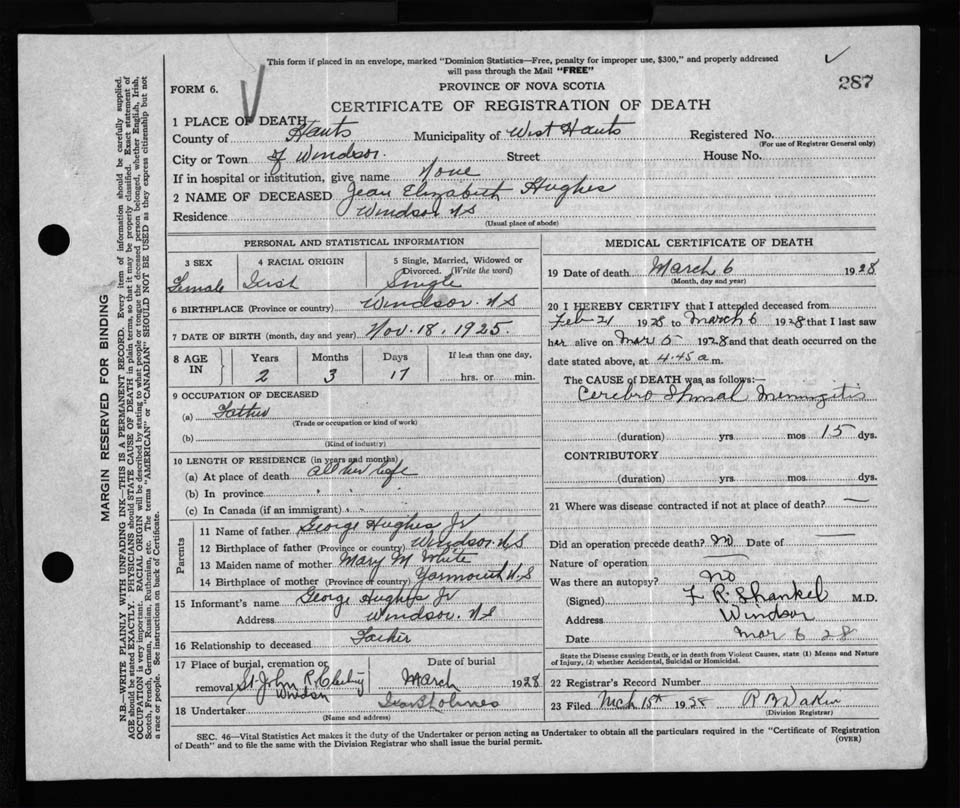 This form if placed in an envelope, marked "Dominion Statistics—Free, penalty for improper use, $300," and properly addressed
will pass through the Mail "FREE"
287
FORM 6.
PROVINCE OF NOVA SCOTIA
CERTIFICATE OF REGISTRATION OF DEATH
1 PLACE OF DEATH
County of Hants Municipality of West Hants Registered No.
(For use of Registrar General only)
City or Town of Windsor. Street House No.
If in hospital or institution, give name None
2 NAME OF DECEASED Jean Elizabeth Hughes
Residence Windsor NS
(Usual place of abode)
MARGIN RESERVED FOR BINDING
N.B.—WRITE PLAINLY WITH UNFADING INK—THIS IS A PERMANENT RECORD. Every item of information should be carefully supplied.
AGE should be stated EXACTLY. PHYSICIANS should STATE CAUSE OF DEATH in plain terms, so that it may be properly classified. Exact statement of
OCCUPATION is very important. RACIAL ORIGIN will be described by stating to what people or tongue the deceased person belonged, whether English, Irish,
Scotch, French, German, Russian, Ruthenian, etc. The terms "AMERICAN" or "CANADIAN" SHOULD NOT BE USED as they express citizenship but not
a race or people. See instructions on back of Certificate.
PERSONAL AND STATISTICAL INFORMATION
3 SEX
Female
4 RACIAL ORIGIN
Irish
5 Single, Married, Widowed or
Divorced. (Write the word)
Single
6 BIRTHPLACE (Province or country) Windsor. NS
7 DATE OF BIRTH (month, day and year) Nov. 18, 1925.
8 AGE
IN
Years
2
Months
3
Days
17
If less than one day,
hrs. or min.
9 OCCUPATION OF DECEASED
(a)
(Trade or occupation or kind of work)
(b)
(Kind of industry)
10 LENGTH OF RESIDENCE (in years and months)
(a) At place of death all her life
(b) In province
(c) In Canada (if an immigrant)
Parents
11 Name of father George Hughes Jr
12 Birthplace of father (Province or country) Windsor. NS
13 Maiden name of mother Mary M White
14 Birthplace of mother (Province of country) Yarmouth NS
15 Informant's name George Hughes Jr
Address Windsor. NS
16 Relationship to deceased Father
17 Place of burial, cremation or
removal St. John R.
Windsor
Date of burial
March 1928
18 Undertaker Holmes
(Name and address)
MEDICAL CERTIFICATE OF DEATH
19 Date of death March 6 1928
(Month, day and year)
20 I HEREBY CERTIFY that I attended deceased from
Feb 21 1928 to March 6 1928 that I last saw
her alive on Mar 5 1928 and that death occurred on the
date stated above, at 4.45 a m.
The CAUSE of DEATH was as follows:—
Cerebro Spinal Meningitis
(duration) yrs. mos 15 dys.
CONTRIBUTORY
(duration) yrs. mos dys.
21 Where was disease contracted if not at place of death? —
Did an operation precede death? no Date of —
Nature of operation —
Was there an autopsy? no
(Signed) F. R. Shankel M.D.
Address Windsor
Date Mar 6 28
State the Disease causing Death, or in death from Violent Causes, state (1) Means and Nature
of Injury, (2) whether Accidental, Suicidal or Homicidal.
22 Registrar's Record Number
23 Filed Mch 15th 1928 R B Dakin
(Division Registrar)
SEC. 46—Vital Statistics Act makes it the duty of the Undertaker or person acting as Undertaker to obtain all the particulars required in the "Certificate of Registration
of Death" and to file the same with the Division Registrar who shall issue the burial permit.
(OVER)